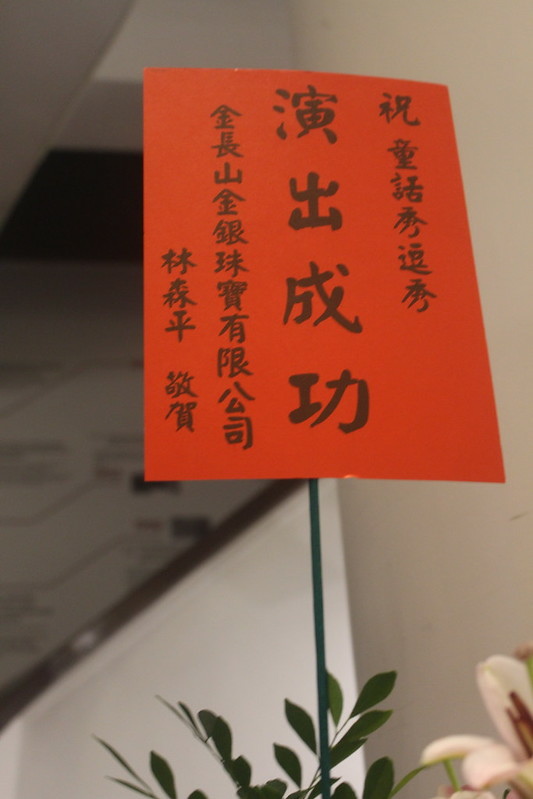 祝 童話秀逗秀
演出成功
金長山金銀珠寶有限公司
林森平 敬賀